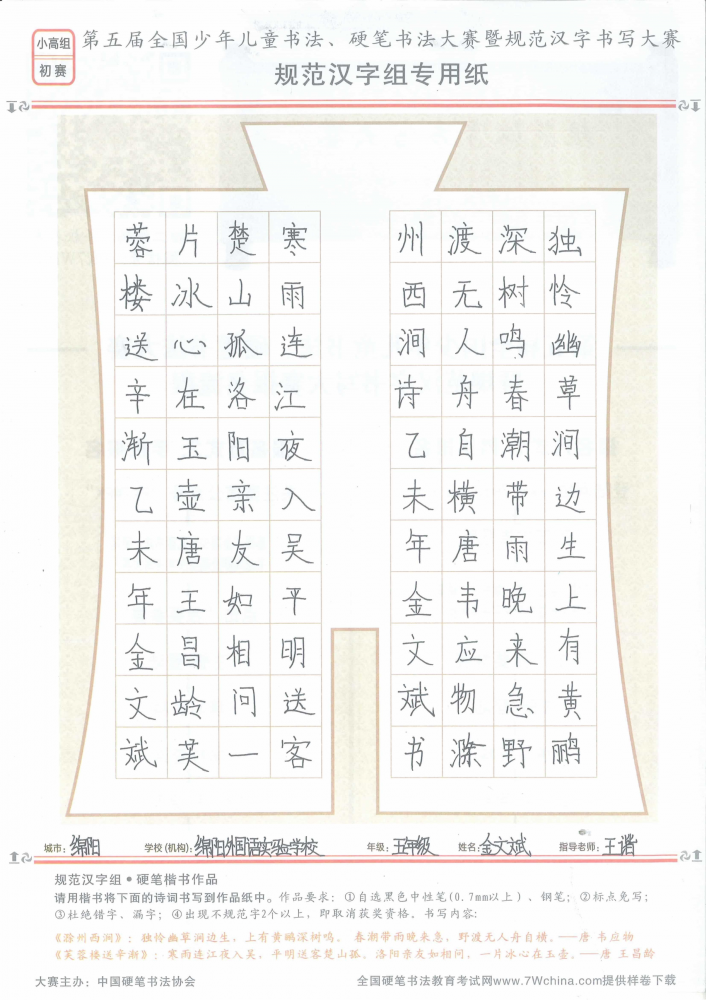 小高组
初赛
第五届全国少年儿童书法、硬笔书法大赛暨规范汉字书写大赛
规范汉字组专用纸
独怜幽草涧边生上有黄鹂
深树鸣春潮带雨晚来急野
渡无人舟自横唐韦应物滁
州西涧诗乙未年金文斌书
寒雨连江夜入吴平明送客
楚山孤洛阳亲友如相问一
片冰心在玉壶唐王昌龄芙
蓉楼送辛渐乙未年金文斌
城市：绵阳 学校(机构)：绵阳外国语实验学校 年级：五年级 姓名：金文斌 指导老师：王谐
规范汉字组•硬笔楷书作品
请用楷书将下面的诗词书写到作品纸中。作品要求；①自选黑色中性笔(0.7mm以上)、钢笔；②标点免写；
③杜绝错字、漏字；④出现不规范字2个以上，即取消获奖资格。书写内容：
《滁州西涧》：独怜幽草涧边生，上有黄鹂深树鸣。 春潮带雨晚来急，野渡无人舟自横。——唐 韦应物
《芙蓉楼送辛渐》：寒雨连江夜入吴，平明送客楚山孤。洛阳亲友如相问，一片冰心在玉壶。——唐 王昌龄
大赛主办：中国硬笔书法协会
全国硬笔书法教育考试网www.7Wchina.com提供样卷下载